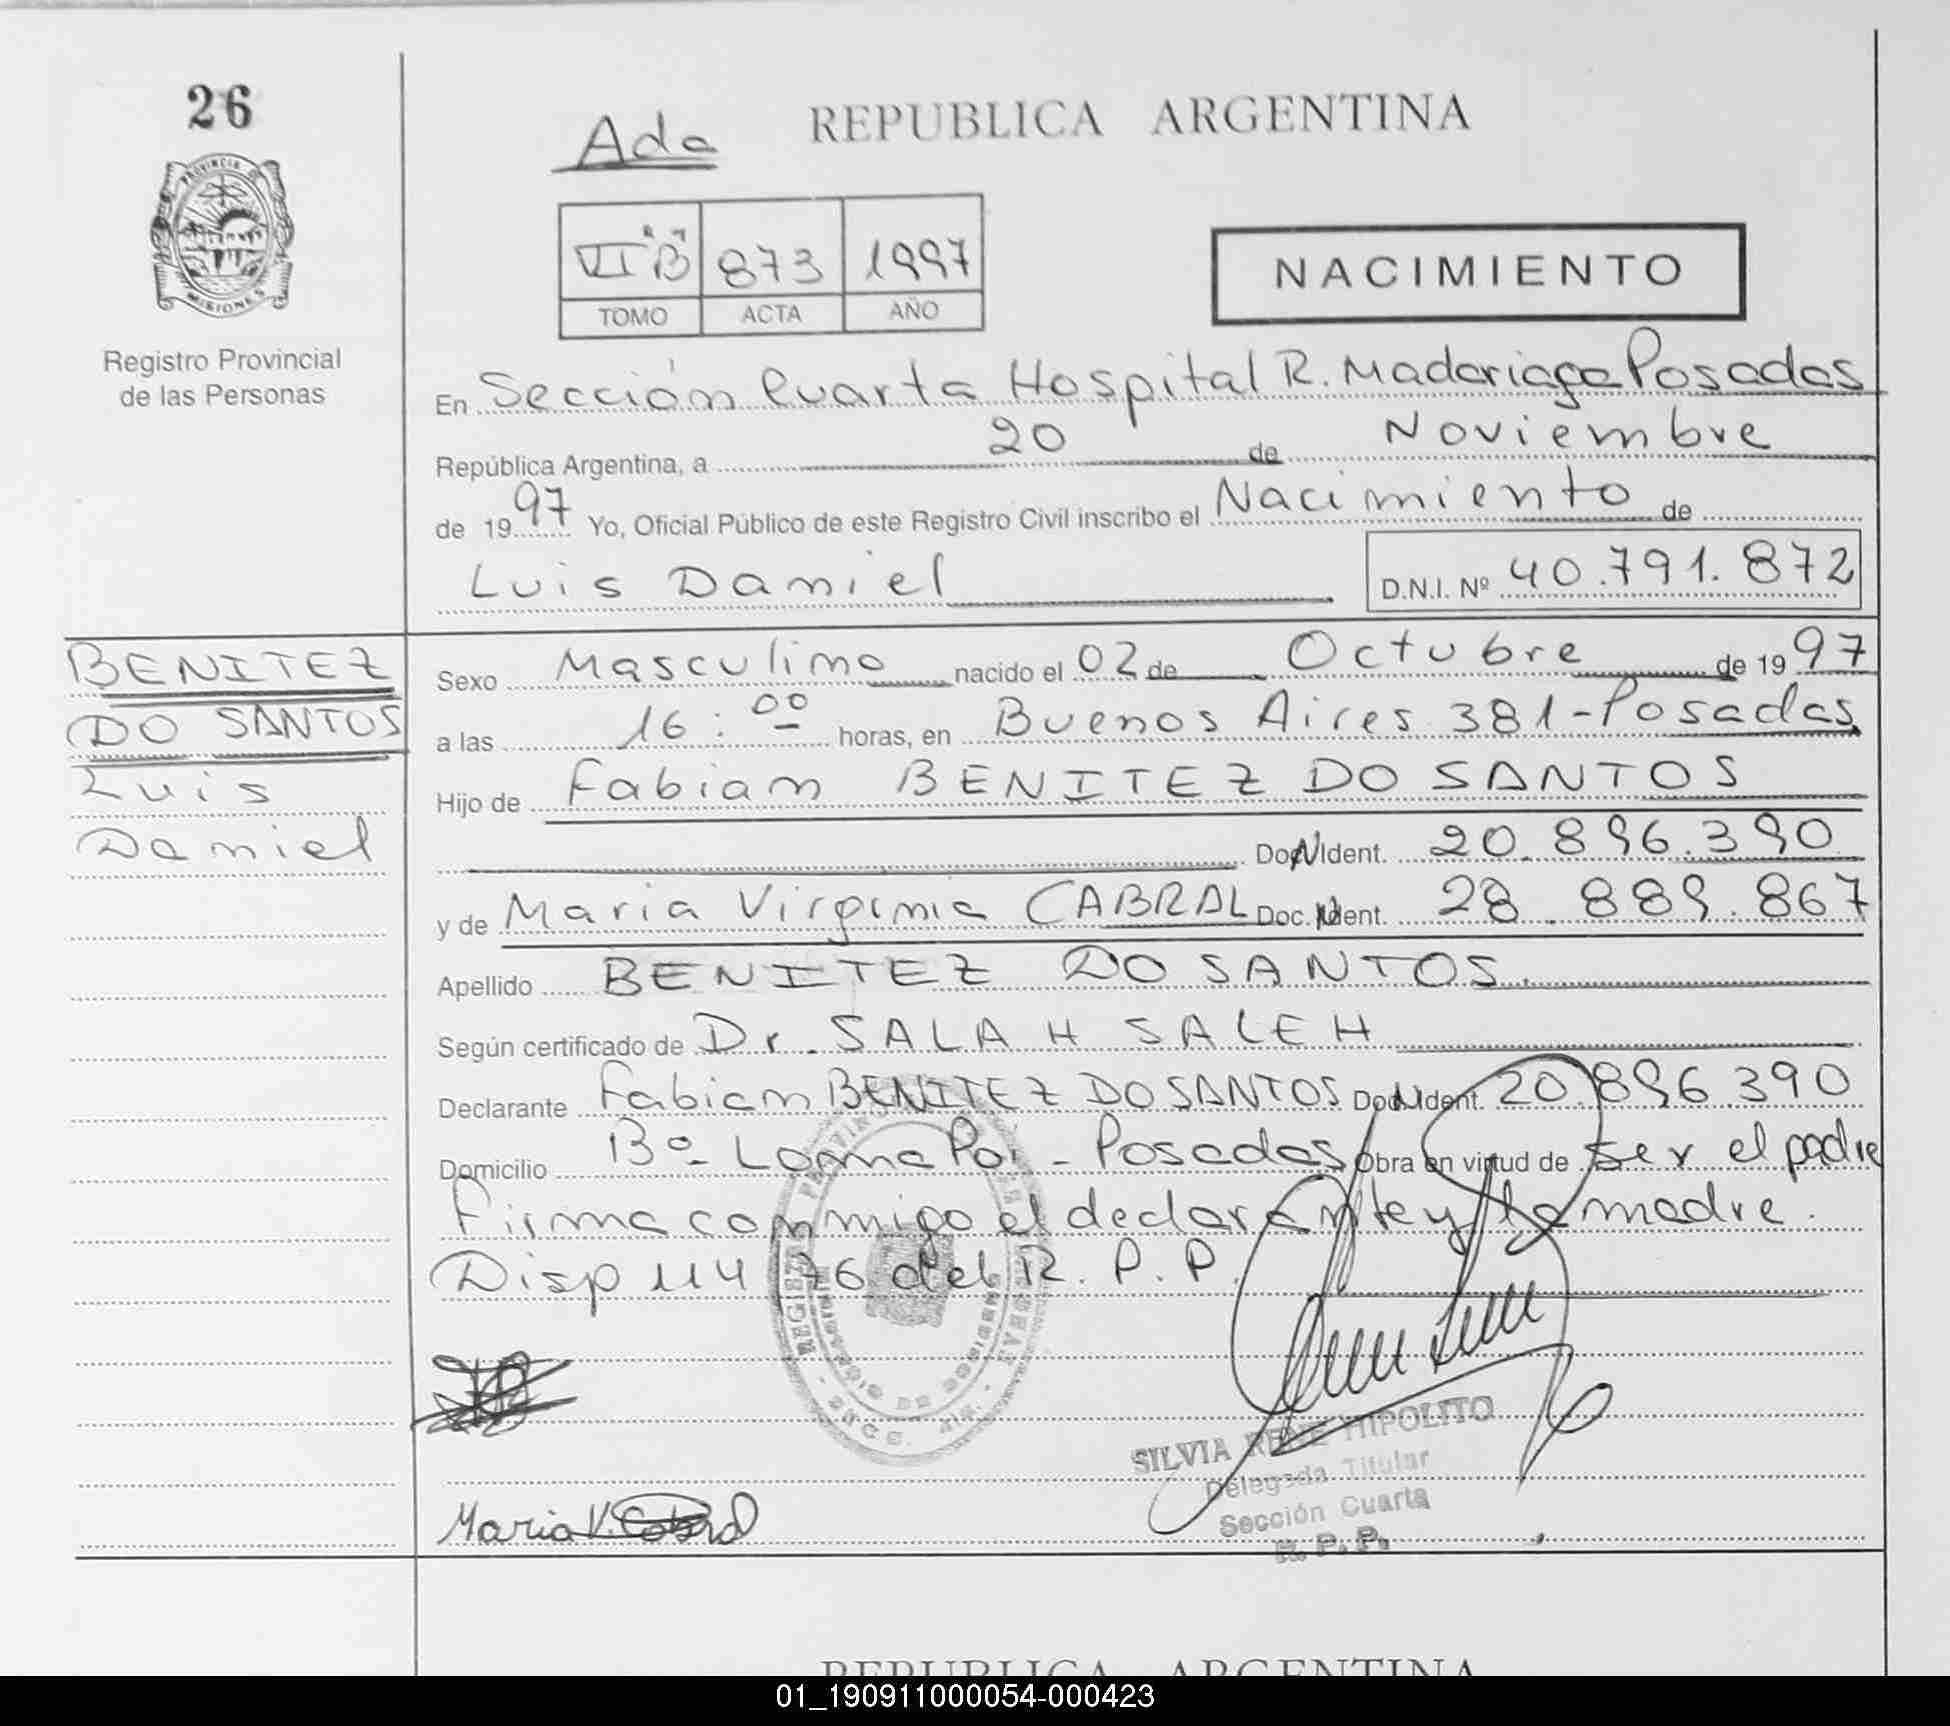 26
PROVINCIA DE
MISIONES
Registro Provincial
de las Personas
Ada
REPUBLICA ARGENTINA
VI "B" 873 1997
TOMO ACTA AÑO
NACIMIENTO
En Sección Cuarta Hospital R. Madariaga Posadas
República Argentina, a 20 de Noviembre
de 1997 Yo, Oficial Público de este Registro Civil inscribo el Nacimiento de
Luis Daniel D.N.I. Nº 40.791.872
BENITEZ
DO SANTOS
Luis
Daniel
Sexo Masculino nacido el 02 de Octubre de 1997
a las 16:00 horas, en Buenos Aires 381-Posadas
Hijo de Fabian BENITEZ DO SANTOS
Doc. Ident. 20.896.390
y de Maria Virginia CABRAL Doc. Ident. 28.889.867
Apellido BENITEZ DO SANTOS.
Según certificado de Dr. SALAH SALEH
Declarante Fabian BENITEZ DO SANTOS Doc. Ident. 20.896.390
Domicilio Bº- Loma Poi - Posadas Obra en virtud de ser el padre
Firma conmigo el declarante y la madre.
Disp 114 76 del R.P.P.
SILVIA RENE HIPOLITO
Delegada Titular
Sección Cuarta
R.P.P.
Maria V. Cabral
REPUBLICA ARGENTINA
01_190911000054-000423